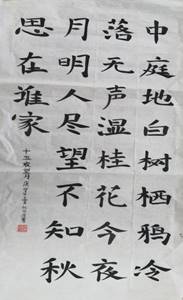 中庭地白树栖鸦冷
落无声湿桂花今夜
月明人尽望不知秋
思在谁家
十五夜望月